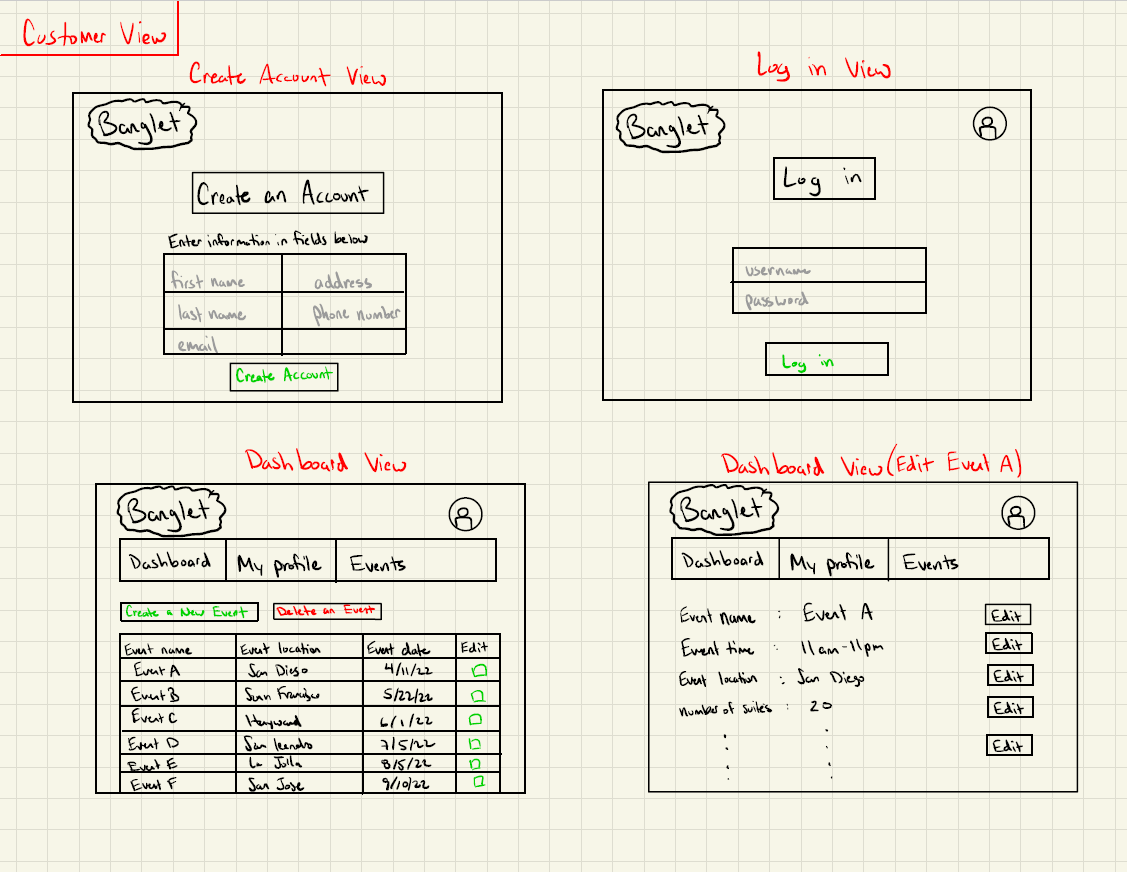 Customer View
Create Account View
Banglet
Create an Account
Enter information in fields below
first name address
last name phone number
email
Create Account
Log in View
Banglet
Log in
username
password
Log in
Dashboard View
Banglet
Dashboard My profile Events
Create a New Event Delete an Event
Event name Event location Event date Edit
Event A San Diego 4/11/22
Event B Sann Francisco 5/22/22
Event C Hayward 6/1/22
Event D San leandro 7/5/22
Event E La Jolla 8/5/22
Event F San Jose 9/10/22
Dashboard View (Edit Event A)
Banglet
Dashboard My profile Events
Event name : Event A Edit
Event time : 11am-11pm Edit
Event location : San Diego Edit
number of suites : 20 Edit
Edit